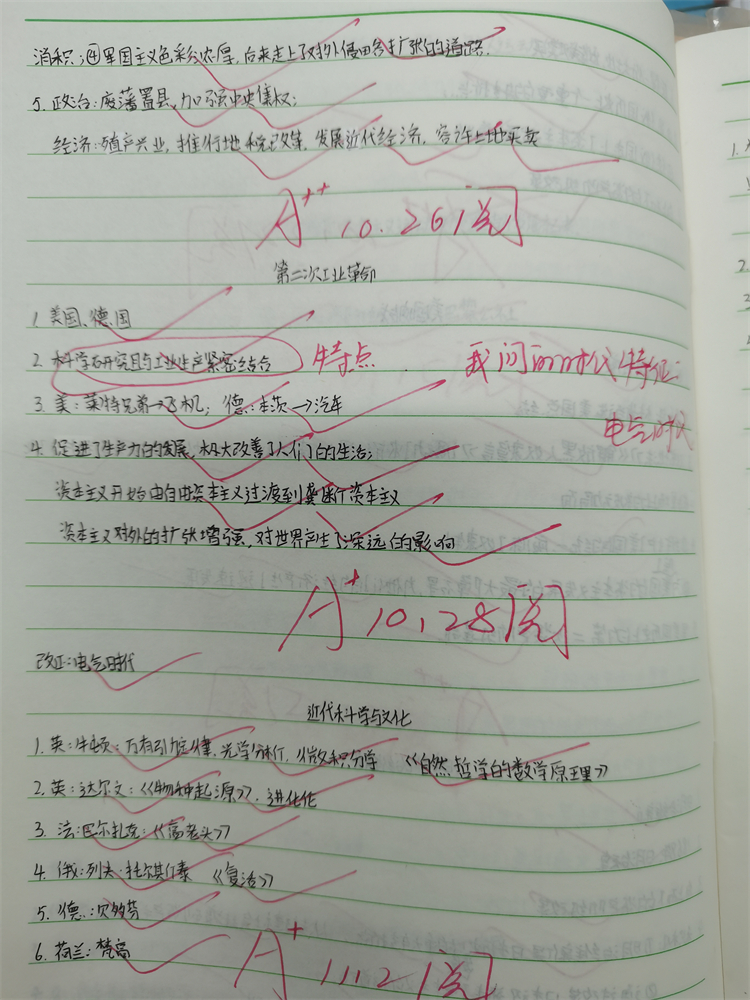 消积:④军国主义色彩浓厚,后来走上了对外侵略扩张的道路.
5. 政治:废藩置县,加强中央集权;
经济:殖产兴业,推行地税改革,发展近代经济,容许土地买卖
A++ 10.26阅
第二次工业革命
1. 美国、德国
2. 科学研究且与工业生产紧密结合 特点 我问的时代特征:
3. 美:莱特兄弟→飞机; 德:本茨→汽车
电气时代
4. 促进了生产力的发展,极大改善了人们的生活;
资本主义开始由自由资本主义过渡到垄断资本主义
资本主义对外的扩张增强,对世界产生了深远的影响
A+ 10.28阅
改正:电气时代
近代科学与文化
1. 英:牛顿:万有引力定律、光学分析、微积分学 《自然哲学的数学原理》
2. 英:达尔文:《物种起源》、进化论
3. 法:巴尔扎克:《高老头》
4. 俄:列夫·托尔斯泰 《复活》
5. 德:贝多芬
6. 荷兰:梵高
A+ 11.2阅